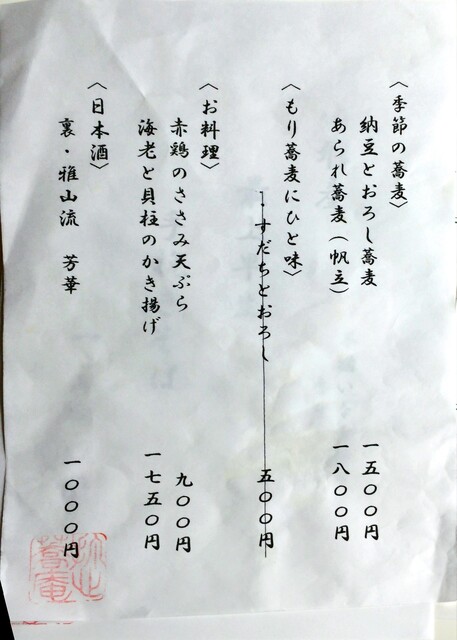 〈季節の蕎麦〉
納豆とおろし蕎麦 一五〇〇円
あられ蕎麦（帆立） 一八〇〇円
〈もり蕎麦にひと味〉
すだちとおろし 五〇〇円
〈お料理〉
赤鶏のささみ天ぷら 九〇〇円
海老と貝柱のかき揚げ 一七五〇円
〈日本酒〉
裏・雅山流 芳華 一〇〇〇円